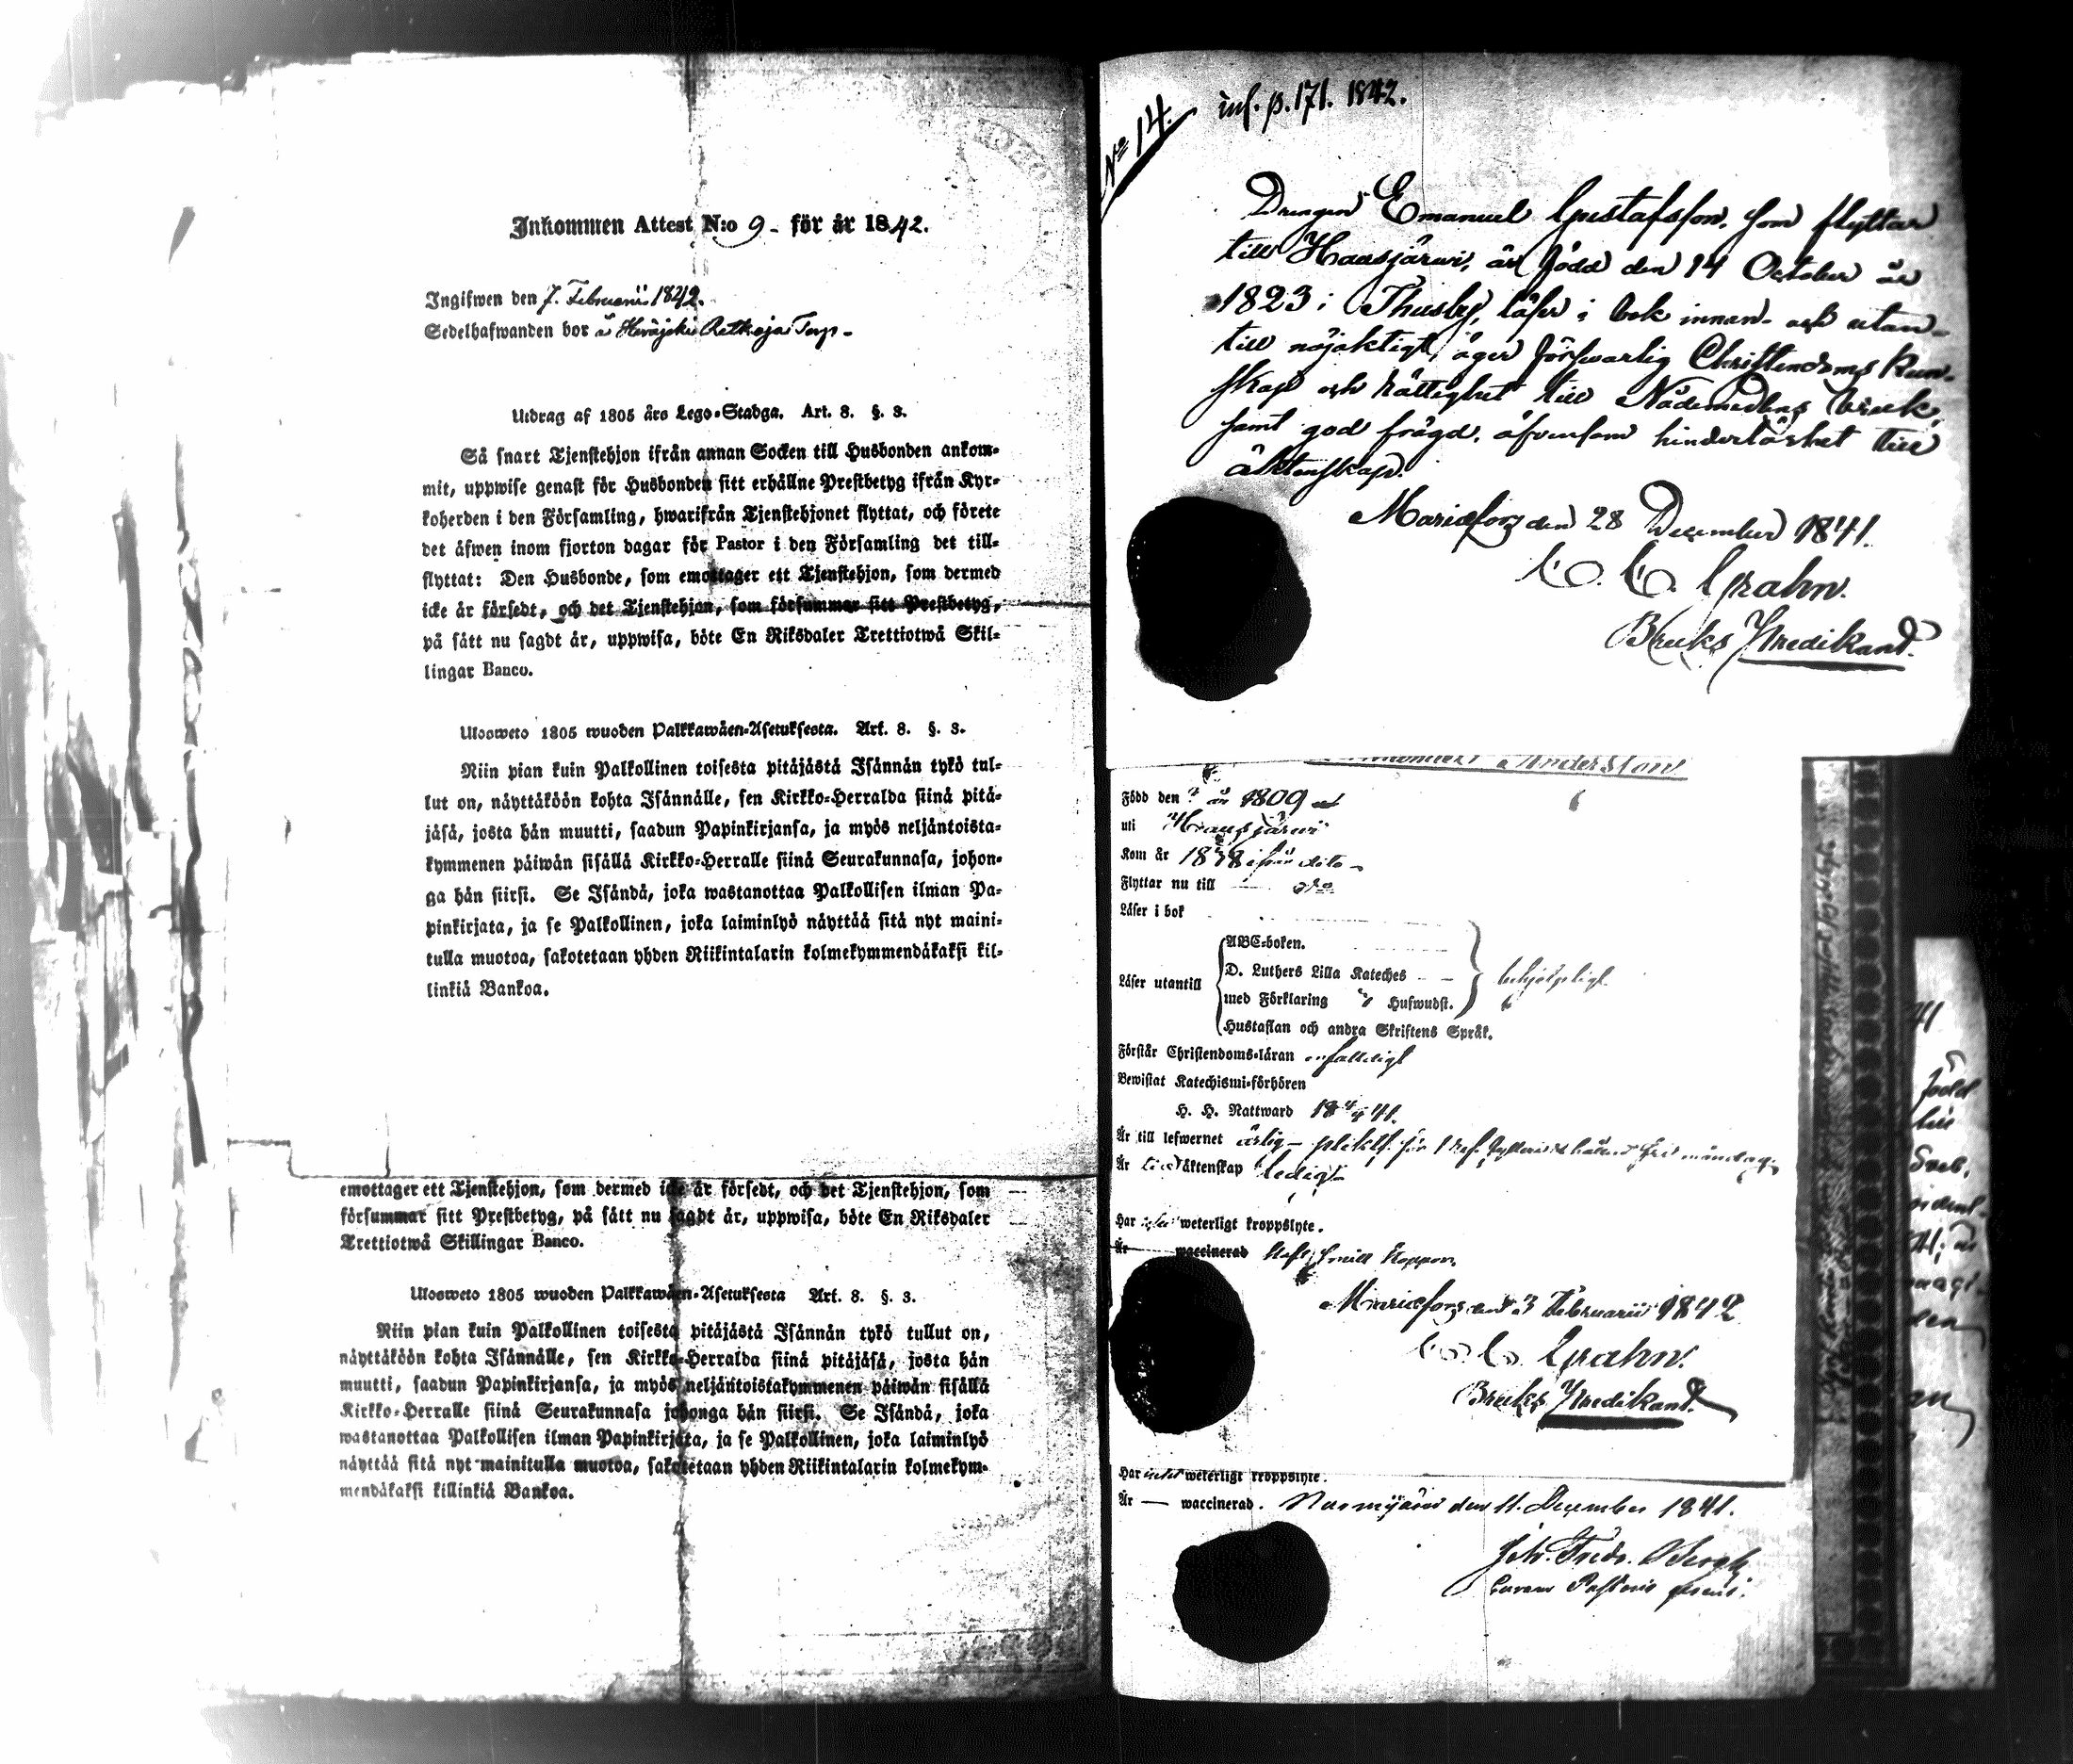 Inkommen Attest N:o 9 - för år 1842.
Ingifwen den 7. Februarii 1842.
Sedelhafwanden bor å Torp -
Utdrag af 1805 års Lego-Stadga. Art. 8. §. 3.
Så snart Tjenstehjon ifrån annan Socken till Husbonden ankom-
mit, uppwise genast för Husbonden sitt erhållne Prestbetyg ifrån Kyr-
koherden i den Församling, hwarifrån Tjenstehjonet flyttat, och förete
det äfwen inom fjorton dagar för Pastor i den Församling det till-
flyttat: Den Husbonde, som emottager ett Tjenstehjon, som dermed
icke är försedt, och det Tjenstehjon, som försummar sitt Prestbetyg,
på sätt nu sagdt är, uppwisa, böte En Riksdaler Trettiotwå Skil-
lingar Banco.
Ulosweto 1805 wuoden Palkkawäen-Asetuksesta. Art. 8. §. 3.
Niin pian kuin Palkollinen toisesta pitäjästä Isännän tykö tul-
lut on, näyttäköön kohta Isännälle, sen Kirkko-Herralda siinä pitä-
jäsä, josta hän muutti, saadun Papinkirjansa, ja myös neljäntoista-
kymmenen päiwän sisällä Kirkko-Herralle siinä Seurakunnasa, johon-
ga hän siirsi. Se Isändä, joka wastanottaa Palkollisen ilman Pa-
pinkirjata, ja se Palkollinen, joka laiminlyö näyttää sitä nyt maini-
tulla muotoa, sakotetaan yhden Riikintalarin kolmekymmendäkaksi kil-
linkiä Bankoa.
emottager ett Tjenstehjon, som dermed icke är försedt, och det Tjenstehjon, som
försummar sitt Prestbetyg, på sätt nu sagdt är, uppwisa, böte En Riksdaler
Trettiotwå Skillingar Banco.
Ulosweto 1805 wuoden Palkkawäen-Asetuksesta Art. 8. §. 3.
Niin pian kuin Palkollinen toisesta pitäjästä Isännän tykö tullut on,
näyttäköön kohta Isännälle, sen Kirkko-Herralda siinä pitäjäsä, josta hän
muutti, saadun Papinkirjansa, ja myös neljäntoistakymmenen päiwän sisällä
Kirkko-Herralle siinä Seurakunnasa johonga hän siirsi. Se Isändä, joka
wastanottaa Palkollisen ilman Papinkirjata, ja se Palkollinen, joka laiminlyö
näyttää sitä nyt mainitulla muotoa, sakotetaan yhden Riikintalarin kolmekym-
mendäkaksi killinkiä Bankoa.
No 14.
inf. p. 171. 1842.
Drengen Emanuel Gustafsson, som flyttar
till Hausjärwi, är född den 14 October år
1823 i Thusby, läser i bok innan- och utan-
till nöjaktigt, äger förswarlig Christendoms kun-
skap och rättighet till Nådemedlens bruk,
samt god frägd, äfvensom hinderlöshet till
äktenskap.
Mariefors den 28 December 1841.
C. C. Grahn.
Bruks Predikant.
Andersson
Född den ? år 1809
uti Hausjärwi
Kom år 1838 ifrån dito -
Flyttar nu till do
Läser i bok
Läser utantill
ABC-boken.
D. Luthers Lilla Kateches
med Förklaring Hufwudst.
Hustaflan och andra Skriftens Språk.
behjelpligt
Förstår Christendoms-läran enfaldigt
Bewistat Katechismi-förhören
H. H. Nattward 18 4/4 41.
Är till lefwernet ärlig - pliktf. för
Är till äktenskap ledig -
Har icke weterligt kroppslyte.
Är waccinerad haft smitt koppor.
Mariefors den 3 Februarii 1842
C. C. Grahn.
Bruks Predikant.
Har intet weterligt kroppslyte.
Är — waccinerad. Nurmijärvi den 11. December 1841.
Joh. Fredr. Bergh